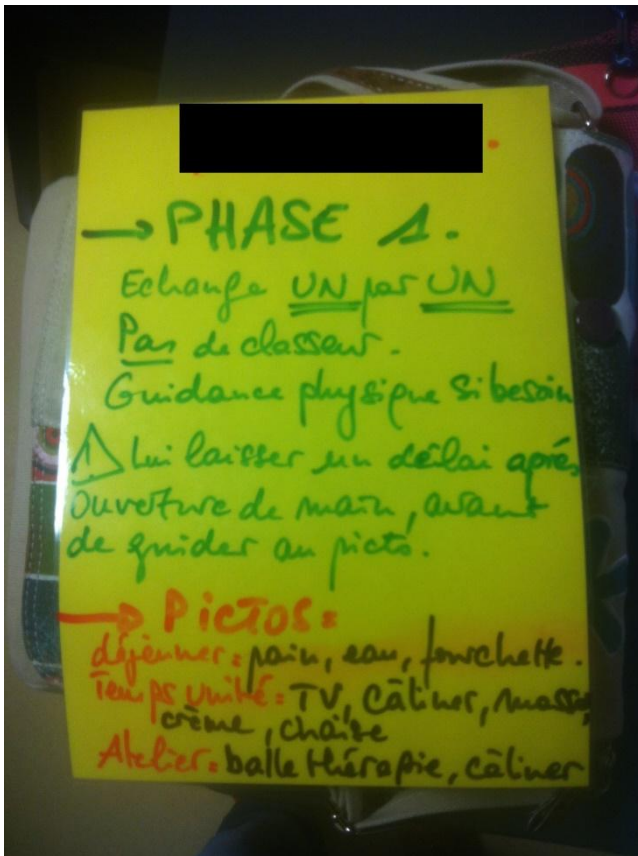 → PHASE 1.
Echange UN par UN
Pas de classeur.
Guidance physique si besoin
⚠ Lui laisser un délai après
Ouverture de main, avant
de guider au picto.
→ PICTOS =
déjeuner = pain, eau, fourchette.
Temps unité = TV, Câliner,
crème, chaise
Atelier = balle thérapie, câliner